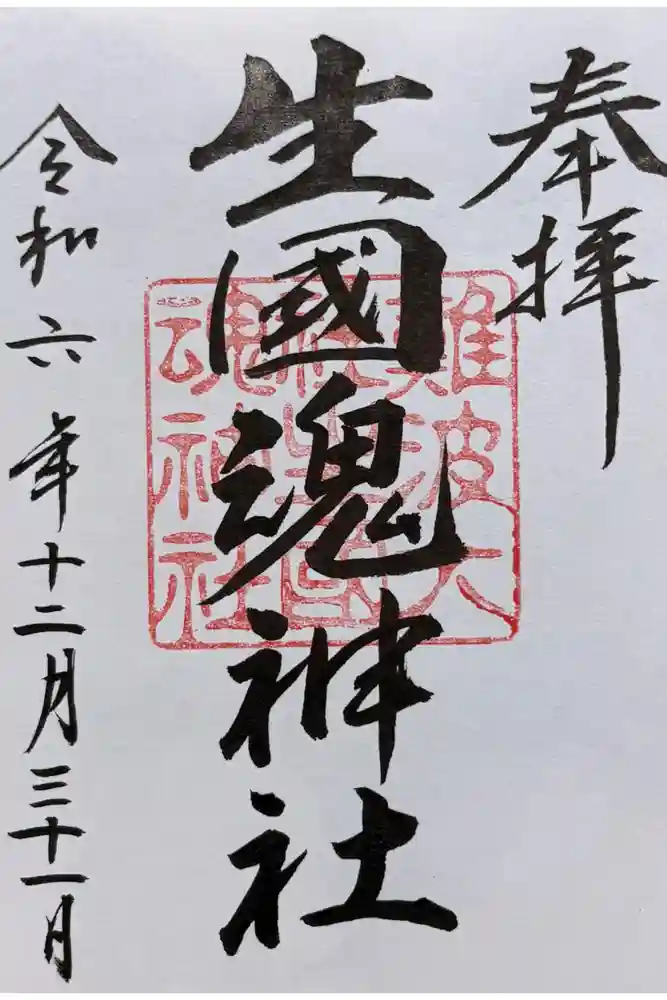 奉拝
生國魂神社
令和六年十二月三十一日
難波大
社生國
魂神社